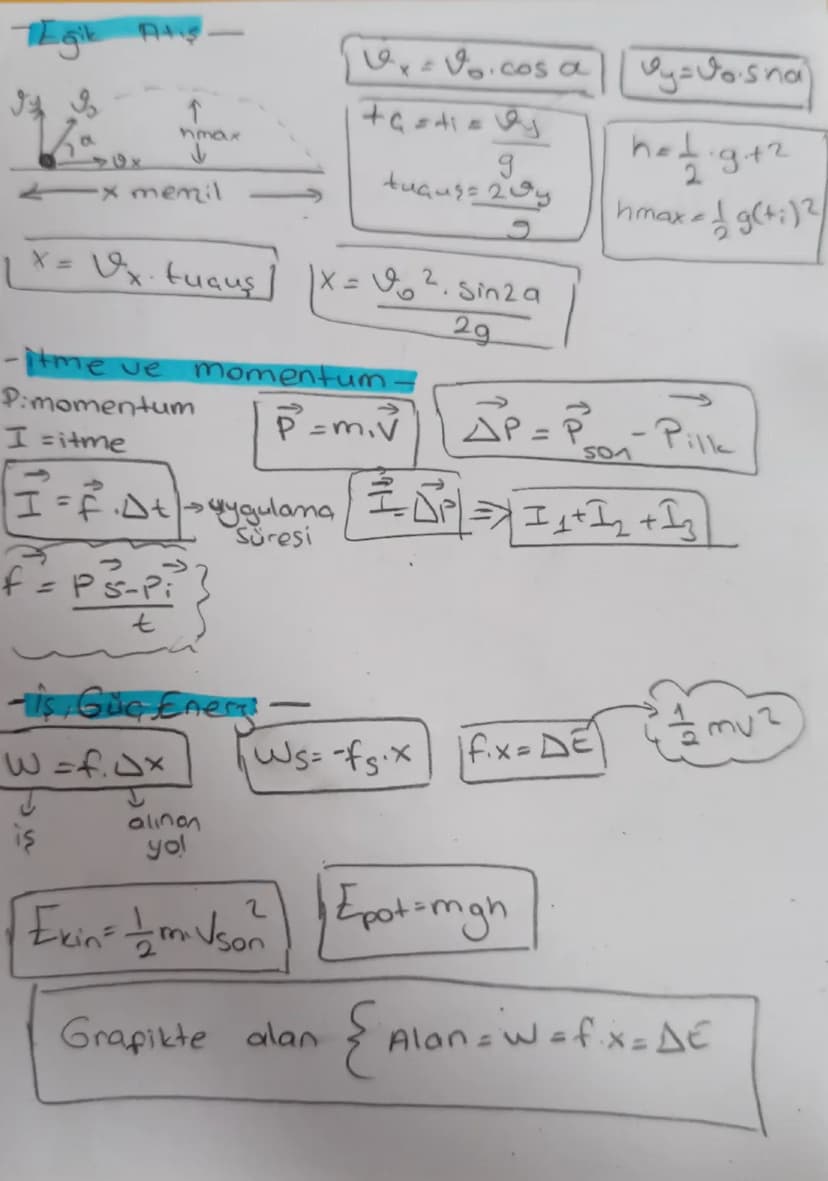 - Eğik Atış -
ϑx = ϑ₀ . cos α
ϑy = ϑ₀ . sna
ϑy ϑ₀ α ϑx
hmax
x menzil
tç = ti = ϑy / g
tuçuş = 2ϑy / g
h = 1/2 . g . t2
hmax = 1/2 g(ti)²
x = ϑx . tuçuş
x = ϑ₀² . sin2a / 2g
- itme ve momentum -
P: momentum
I = itme
P⃗ = m.V⃗
ΔP⃗ = P⃗son - P⃗ilk
I⃗ = f⃗ . Δt → uygulama süresi
I⃗ = ΔP⃗ ⇒ I₁ + I₂ + I₃
f⃗ = Ps⃗ - Pi⃗ / t
- iş, Güç, Enerji -
W = f . Δx
iş
alınan
yol
Ws = -fs . x
f.x = ΔE → 1/2 mv²
Ekin = 1/2 m.Vson²
Epot = mgh
Grafikte alan { Alan = W = f.x = ΔE